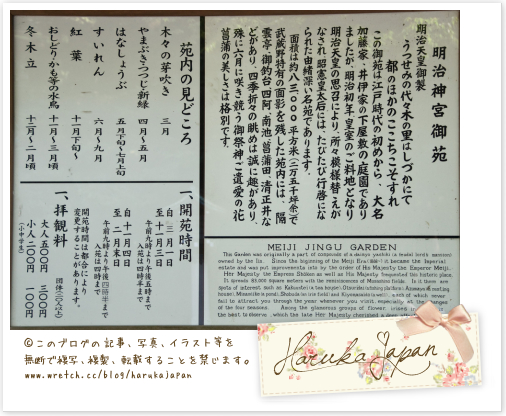 明治神宮御苑
明治天皇御製
うつせみの代々木の里はしづかにて
都のほかのここちこそすれ
この御苑は江戸時代の初めから、大名
加藤家、井伊家の下屋敷の庭園であり
ましたが、明治初年皇室のご料地となり
明治天皇の思召により所々模様替えが
なされ昭憲皇太后にはたびたび行啓にな
られた由緒深い名苑であります。
面積は約八三、〇〇〇平方米(二万五千坪余)で
武蔵野特有の面影を残した苑内には、隔
雲亭、御釣台、四阿、南池、菖蒲田、清正井な
どがあり、四季折々の眺めは誠に趣があり、
殊に六月に咲き競う御祭神ご遺愛の花
菖蒲の美しさは格別です。
苑内の見どころ
木々の芽吹き 三月
やまぶき・つつじ・新緑 四月～五月
はなしょうぶ 五月下旬～七月上旬
すいれん 六月～九月
紅葉 十一月下旬～
おしどり・かも等の水鳥 十一月～三月頃
冬木立 十二月～二月頃
一、開苑時間
自 三月一日
至 十一月三日
午前九時より午後五時まで
入苑は四時半まで
自 十一月四日
至 二月末日
午前九時より午後四時半まで
入苑は四時まで
開苑時間は都合により
変更することがあります。
一、拝観料
団体(二〇人以上)
大人 五〇〇円
小人 二〇〇円 一〇〇円
(小中学生)
MEIJI JINGU GARDEN
This Garden was originally a part of compounds of a daimyo yashiki (a feudal lord's mansion)
owned by the Ii. Since the beginning of the Meiji Era it became the Imperial
estate and was put improvements into by the order of His Majesty the Emperor Meiji.
Her Majesty the Empress Shōken as well as His Majesty frequented this historic place.
It spreads 83,000 square meters with the reminiscences of Musashino fields. In it there are
spots of interest such as: Kakuuntei (a tea house), Otsuridai (a fishing platform), Azumaya (a resting
house), Minamiike (a pond), Shobuda (an iris field) and Kiyomasaido (a well), each of which never
fail to attract you through the year whenever you visit, especially at the change
of the four seasons. Among the glamorous groups of flower, irises
the best to observe, which the late Her Majesty cherished
©このブログの記事、写真、イラスト等を
無断で複写、複製、転載することを禁じます。
www.wretch.cc/blog/harukajapan
Haruka Japan